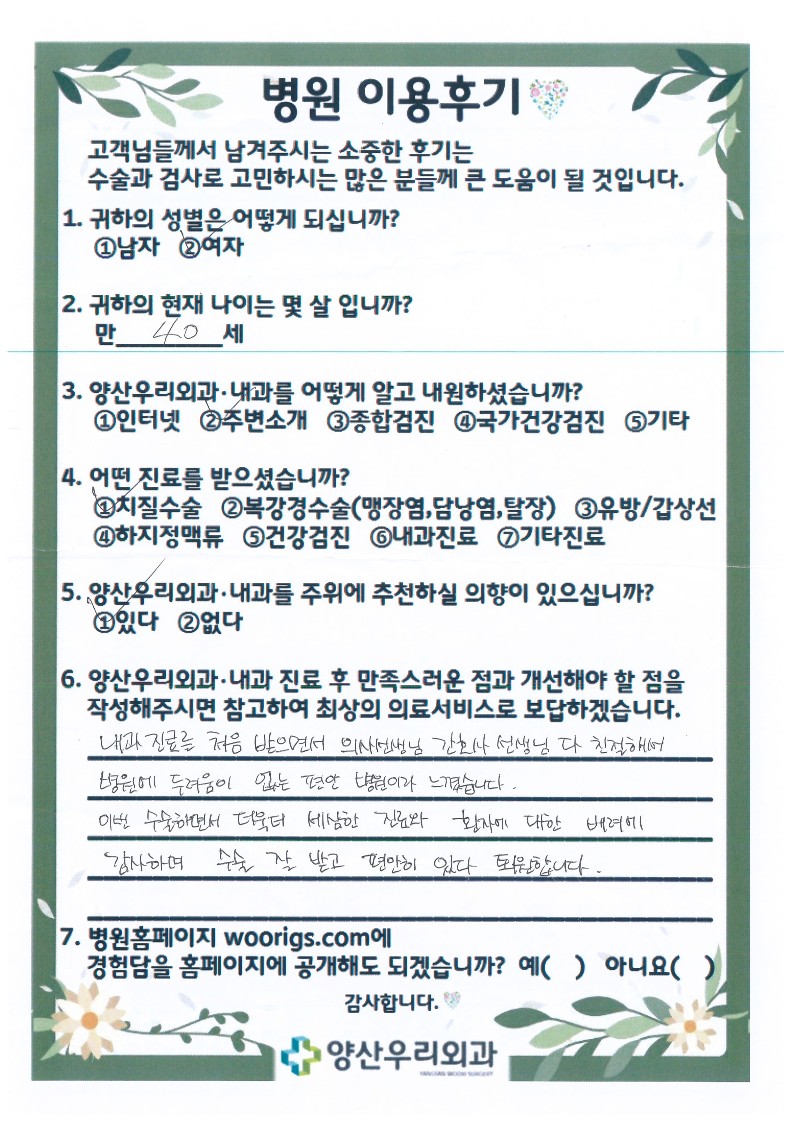 병원 이용후기
고객님들께서 남겨주시는 소중한 후기는
수술과 검사로 고민하시는 많은 분들께 큰 도움이 될 것입니다.
1. 귀하의 성별은 어떻게 되십니까?
①남자 ②여자
2. 귀하의 현재 나이는 몇 살 입니까?
만 40 세
3. 양산우리외과·내과를 어떻게 알고 내원하셨습니까?
①인터넷 ②주변소개 ③종합검진 ④국가건강검진 ⑤기타
4. 어떤 진료를 받으셨습니까?
①치질수술 ②복강경수술(맹장염,담낭염,탈장) ③유방/갑상선
④하지정맥류 ⑤건강검진 ⑥내과진료 ⑦기타진료
5. 양산우리외과·내과를 주위에 추천하실 의향이 있으십니까?
①있다 ②없다
6. 양산우리외과·내과 진료 후 만족스러운 점과 개선해야 할 점을
작성해주시면 참고하여 최상의 의료서비스로 보답하겠습니다.
내과 진료를 처음 받으면서 의사선생님 간호사 선생님 다 친절해서
병원에 두려움이 없는 편안 병원이라 느꼈습니다.
이번 수술하면서 더욱더 세심한 진료와 환자에 대한 배려에
감사하며 수술 잘 받고 편안히 있다 퇴원합니다.
7. 병원홈페이지 woorigs.com에
경험담을 홈페이지에 공개해도 되겠습니까? 예( ) 아니요( )
감사합니다.
양산우리외과
YANGSAN WOORI SURGERY